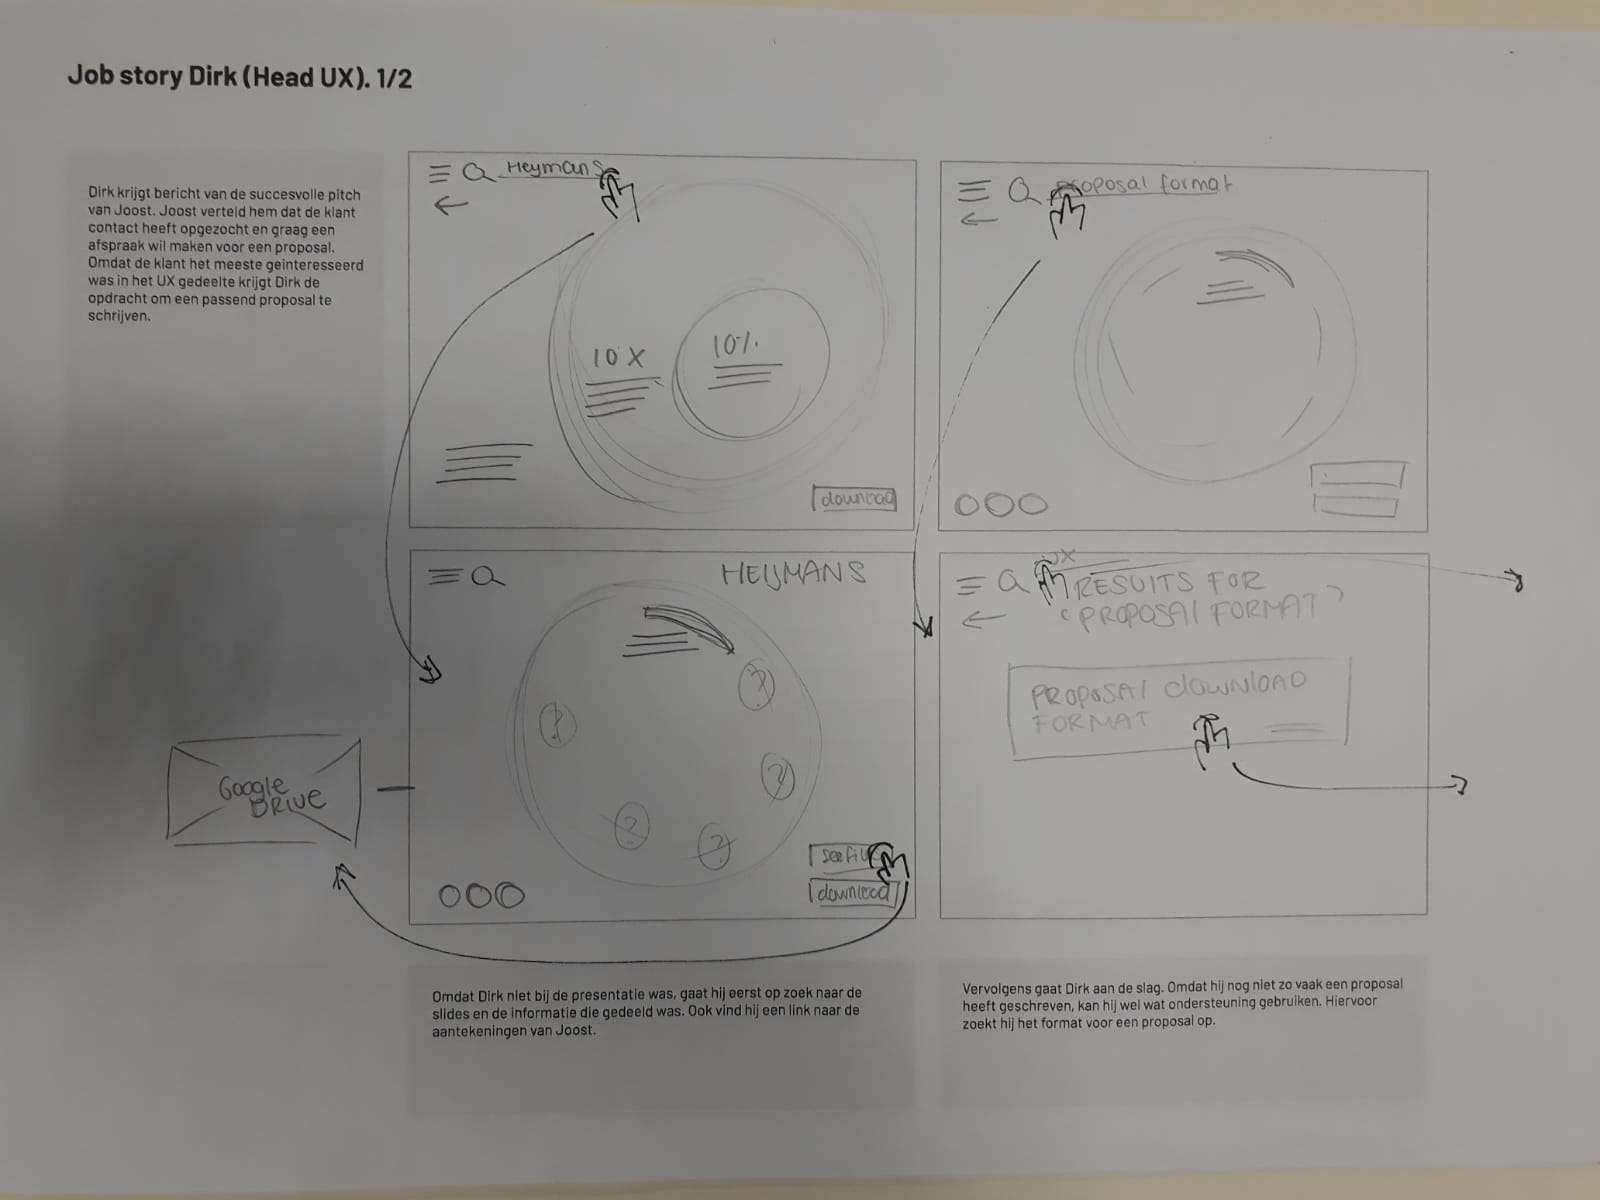 Job story Dirk (Head UX). 1/2
Dirk krijgt bericht van de succesvolle pitch
van Joost. Joost verteld hem dat de klant
contact heeft opgezocht en graag een
afspraak wil maken voor een proposal.
Omdat de klant het meeste geinteresseerd
was in het UX gedeelte krijgt Dirk de
opdracht om een passend proposal te
schrijven.
Heymans
10 X
10%
download
proposal format
HEIJMANS
see file
download
Google
DRIVE
UX
RESUITS FOR
‘PROPOSAl FORMAT’
PROPOSAl downlOAD
FORMAT
Omdat Dirk niet bij de presentatie was, gaat hij eerst op zoek naar de
slides en de informatie die gedeeld was. Ook vind hij een link naar de
aantekeningen van Joost.
Vervolgens gaat Dirk aan de slag. Omdat hij nog niet zo vaak een proposal
heeft geschreven, kan hij wel wat ondersteuning gebruiken. Hiervoor
zoekt hij het format voor een proposal op.